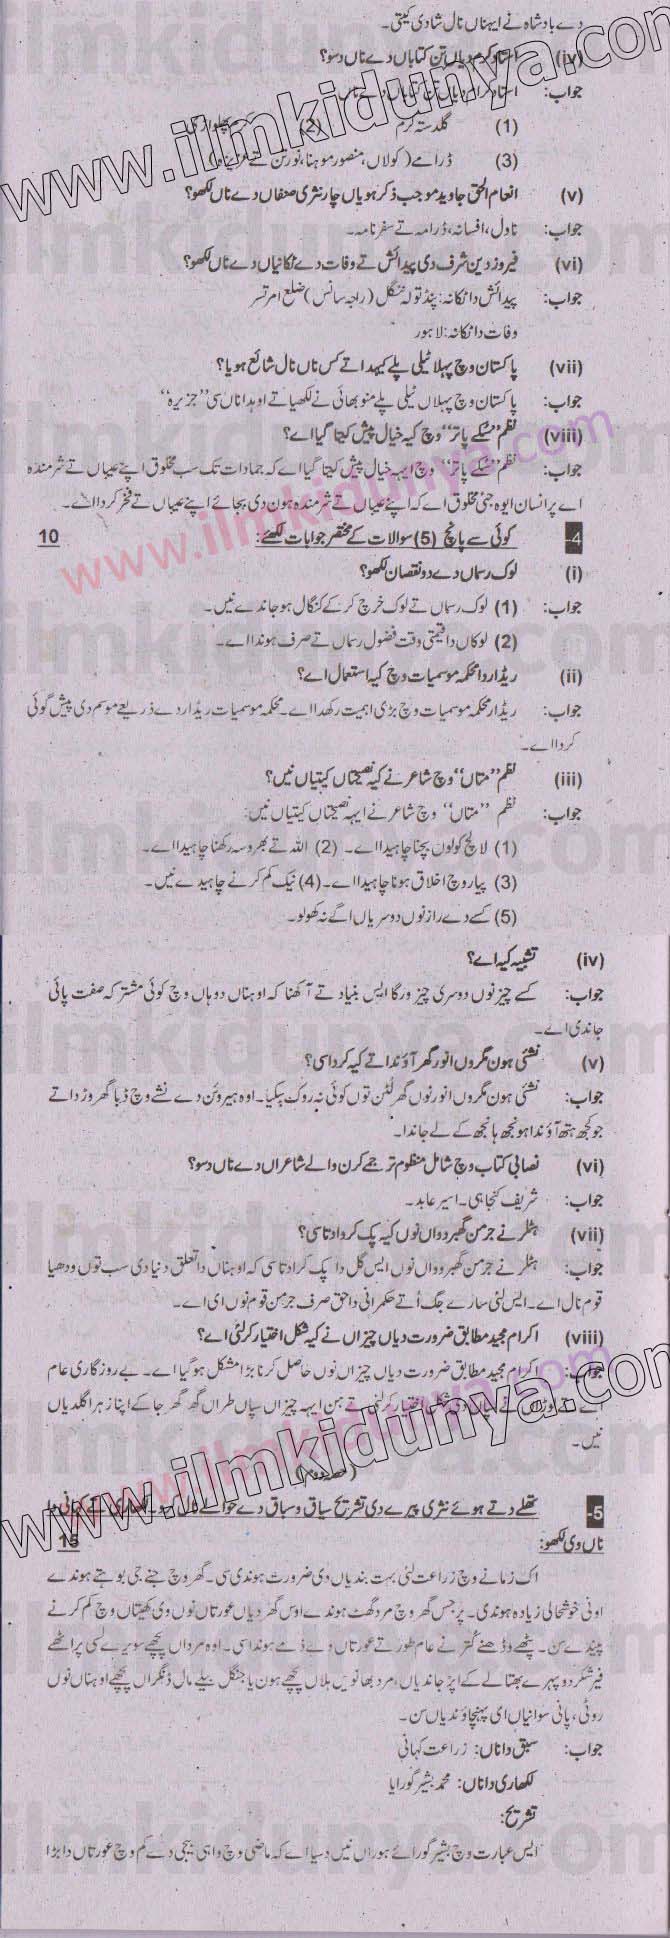 دے بادشاہ نے ایہناں نال شادی کیتی۔
(iv) استاد کرم دیاں تن کتاباں دے ناں دسو؟
جواب: استاد کرم دیاں تن کتاباں دے ناں
(1) گلدستہ کرم (2) کرم پھلواڑی
(3) ڈرامے (کولاں، منصور موہنا، نورتن تے
(v) انعام الحق جاوید موجب ذکر ہویاں چار نثری صنفاں دے ناں لکھو؟
جواب: ناول، افسانہ، ڈرامہ تے سفر نامہ۔
(vi) فیروز دین شرف دی پیدائش تے وفات دے ٹکانیاں دے ناں لکھو؟
جواب: پیدائش دا ٹکانہ: پنڈ تولہ ننگل (راجہ سانس) ضلع امرتسر
وفات دا ٹکانہ: لاہور
(vii) پاکستان وچ پہلا ٹیلی پلے کیہدا تے کس ناں نال شائع ہویا؟
جواب: پاکستان وچ پہلاں ٹیلی پلے منو بھائی نے لکھیا تے اوہدا ناں سی ”جزیرہ“
(viii) نظم ”سُکے پاتر“ وچ کیہ خیال پیش کیتا گیا اے؟
جواب: نظم ”سُکے پاتر“ وچ ایہہ خیال پیش کیتا گیا اے کہ جمادات تک سب مخلوق اپنے عیباں تے شرمندہ
اے پر انسان ایوہ جئی مخلوق اے کہ اپنے عیباں تے شرمندہ ہون دی بجائے اپنے عیباں تے فخر کردا اے۔
4- کوئی سے پانچ (5) سوالات کے مختصر جوابات لکھئے: 10
(i) لوک رسماں دے دو نقصان لکھو؟
جواب: (1) لوک رسماں تے لوک خرچ کر کے کنگال ہو جاندے نیں۔
(2) لوکاں دا قیمتی وقت فضول رسماں تے صرف ہوندا اے۔
(ii) ریڈار دا محکمہ موسمیات وچ کیہ استعمال اے؟
جواب: ریڈار محکمہ موسمیات وچ بڑی اہمیت رکھدا اے۔ محکمہ موسمیات ریڈار دے ذریعے موسم دی پیش گوئی
کردا اے۔
(iii) نظم ”متاں“ وچ شاعر نے کیہ نصیحتاں کیتیاں نیں؟
جواب: نظم ”متاں“ وچ شاعر نے ایہہ نصیحتاں کیتیاں نیں:
(1) لالچ کولوں بچنا چاہیدا اے۔ (2) اللہ تے بھروسہ رکھنا چاہیدا اے۔
(3) پیار وچ اخلاق ہونا چاہیدا اے۔ (4) نیک کم کرنے چاہیدے نیں۔
(5) کسے دے راز نوں دوسریاں اگے نہ کھولو۔
(iv) تشبیہ کیہ اے؟
جواب: کسے چیز نوں دوسری چیز ورگا ایس بنیاد تے آکھنا کہ اوہناں دوہاں وچ کوئی مشترکہ صفت پائی
جاندی اے۔
(v) نشئی ہون مگروں انور گھر آؤندا تے کیہ کردا سی؟
جواب: نشئی ہون مگروں انور نوں گھر لُٹن توں کوئی نہ روک سکیا۔ اوہ ہیروئن دے نشے وچ ڈبا گھر وڑدا تے
جو کجھ ہتھ آؤندا ہونجھ ہانجھ کے لے جاندا۔
(vi) نصابی کتاب وچ شامل منظوم ترجمے کرن والے شاعراں دے ناں دسو؟
جواب: شریف کنجاہی۔ اسیر عابد۔
(vii) ہٹلر نے جرمن گھبرواں نوں کیہ پک کروادتا سی؟
جواب: ہٹلر نے جرمن گھبرواں نوں ایس گل دا پک کرادتا سی کہ اوہناں دا تعلق دنیا دی سب توں ودھیا
قوم نال اے۔ ایس لئی سارے جگ اُتے حکمرانی دا حق صرف جرمن قوم نوں ای اے۔
(viii) اکرام مجید مطابق ضرورت دیاں چیزاں نے کیہ شکل اختیار کرلئی اے؟
جواب: اکرام مجید مطابق ضرورت دیاں چیزاں نوں حاصل کرنا بڑا مشکل ہو گیا اے۔ بے روزگاری عام
اے تے نے سپاں دی شکل اختیار کرلئی تے ہن ایہہ چیزاں سپاں طراں گھر گھر جا کے اپنا زہر اگلدیاں
نیں۔
(حصہ دوم)
5- تھلے دتے ہوئے نثری پیرے دی تشریح سیاق و سباق دے حوالے نال کرو۔ لکھاری تے کہانی دا
ناں وی لکھو: 15
اک زمانے وچ زراعت لئی بہت بندیاں دی ضرورت ہوندی سی۔ گھر وچ جنے جی بوہتے ہوندے
اونی خوشحالی زیادہ ہوندی۔ پر جس گھر وچ مرد گھٹ ہوندے اوس گھر دیاں عورتاں نوں وی کھیتاں وچ کم کرنے
پیندے سن۔ پٹھے وڈھنے کُترنے عام طور تے عورتاں دے ذمے ہوندا سی۔ اوہ مرداں پچھے سویرے لسی پراٹھے
فیر شکر دوپہرے بھتا لے کے اپڑ جاندیاں، مرد بھانویں ہلاں پچھے ہون یا جنگل بیلے مال ڈنگراں پچھے اوہناں نوں
روٹی، پانی سوانیاں ای پہنچاؤندیاں سن۔
جواب: سبق دا ناں: زراعت کہانی
لکھاری دا ناں: محمد بشیر گورایا
تشریح:
ایس عبارت وچ بشیر گورائے ہوراں نیں دسیا اے کہ ماضی وچ واہی بیجی دے کم وچ عورتاں دا بڑا
www.ilmkidunya.com
www.ilmkidunya.com
www.ilmkidunya.com